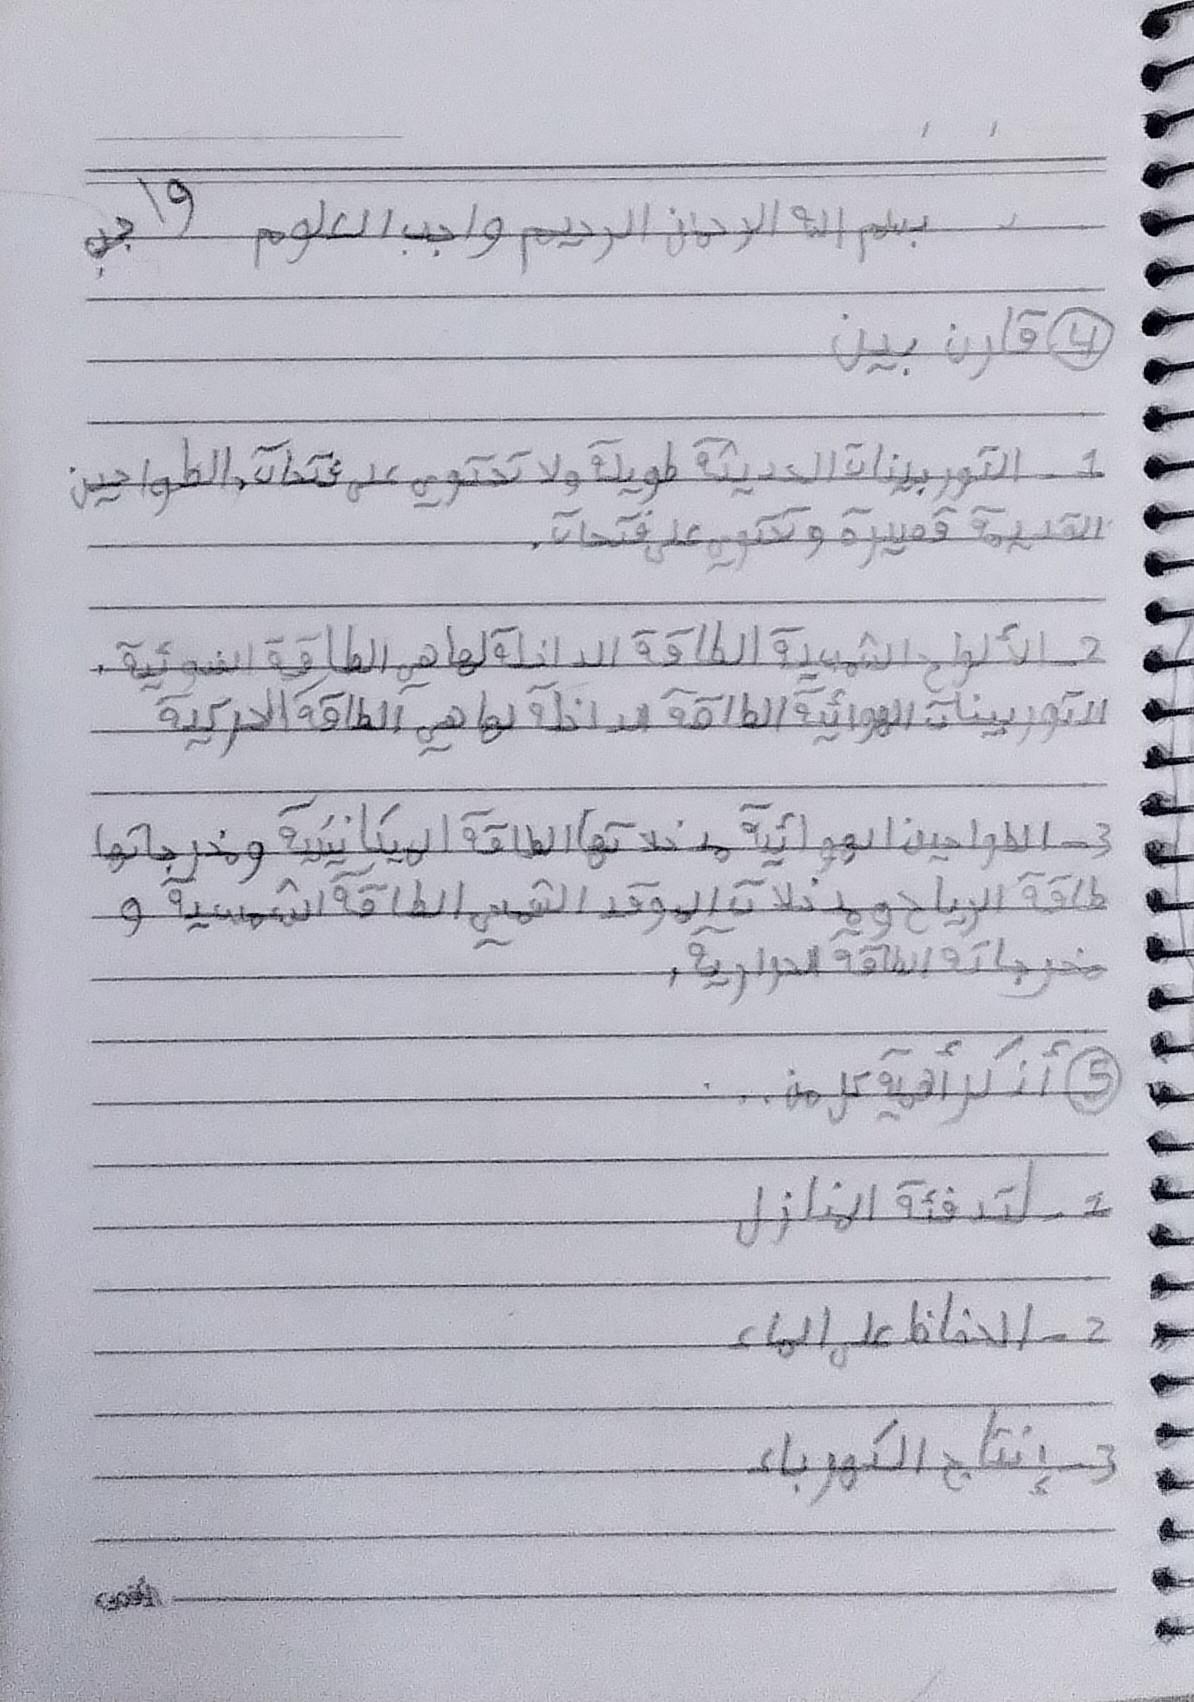 بسم الله الرحمان الرحيم واجب العلوم واجب
④ قارن بين
1- التوربينات الحديثة طويلة ولا تحتوي على فتحات. الطواحين
القديمة قصيرة وتحتوي على فتحات.
2- الألواح الشمسية الطاقة الداخلة لها هي الطاقة الضوئية.
التوربينات الهوائية الطاقة الداخلة لها هي الطاقة الحركية
3- الطواحين الهوائية مدخلاتها الطاقة الميكانيكية ومخرجاتها
طاقة الرياح ومدخلات الموقد الشمسي الطاقة الشمسية و
مخرجاته الطاقة الحرارية.
⑤ أذكر أهمية كل من...
1- لتدفئة المنازل
2- الحفاظ على الماء
3- إنتاج الكهرباء